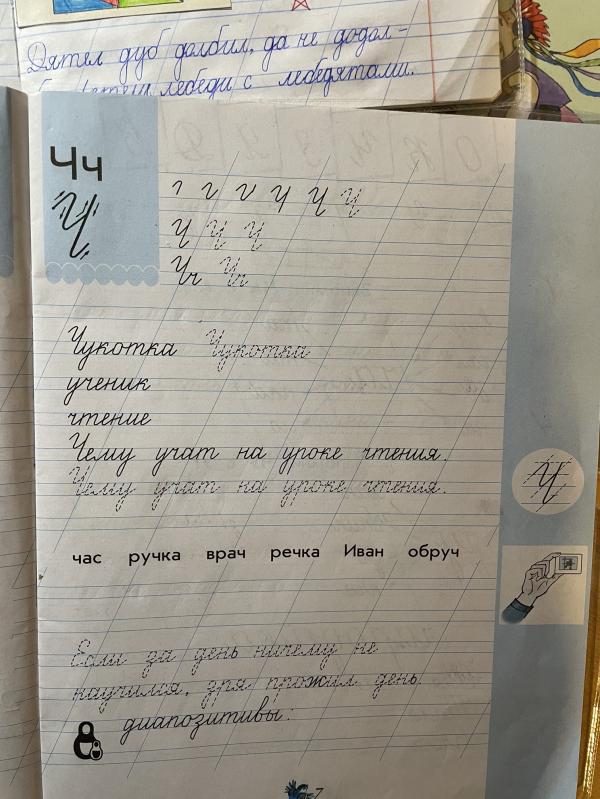 Дятел дуб долбил, да не додол-
лебеди с лебедятами.
Чч
Ч
Ч Ч Ч
Ч Ч Ч
Чч Чч
Чукотка Чукотка
ученик
чтение
Чему учат на уроке чтения.
Чему учат на уроке чтения.
Ч
час ручка врач речка Иван обруч
Если за день ничему не
научился, зря прожил день.
диапозитивы:
7